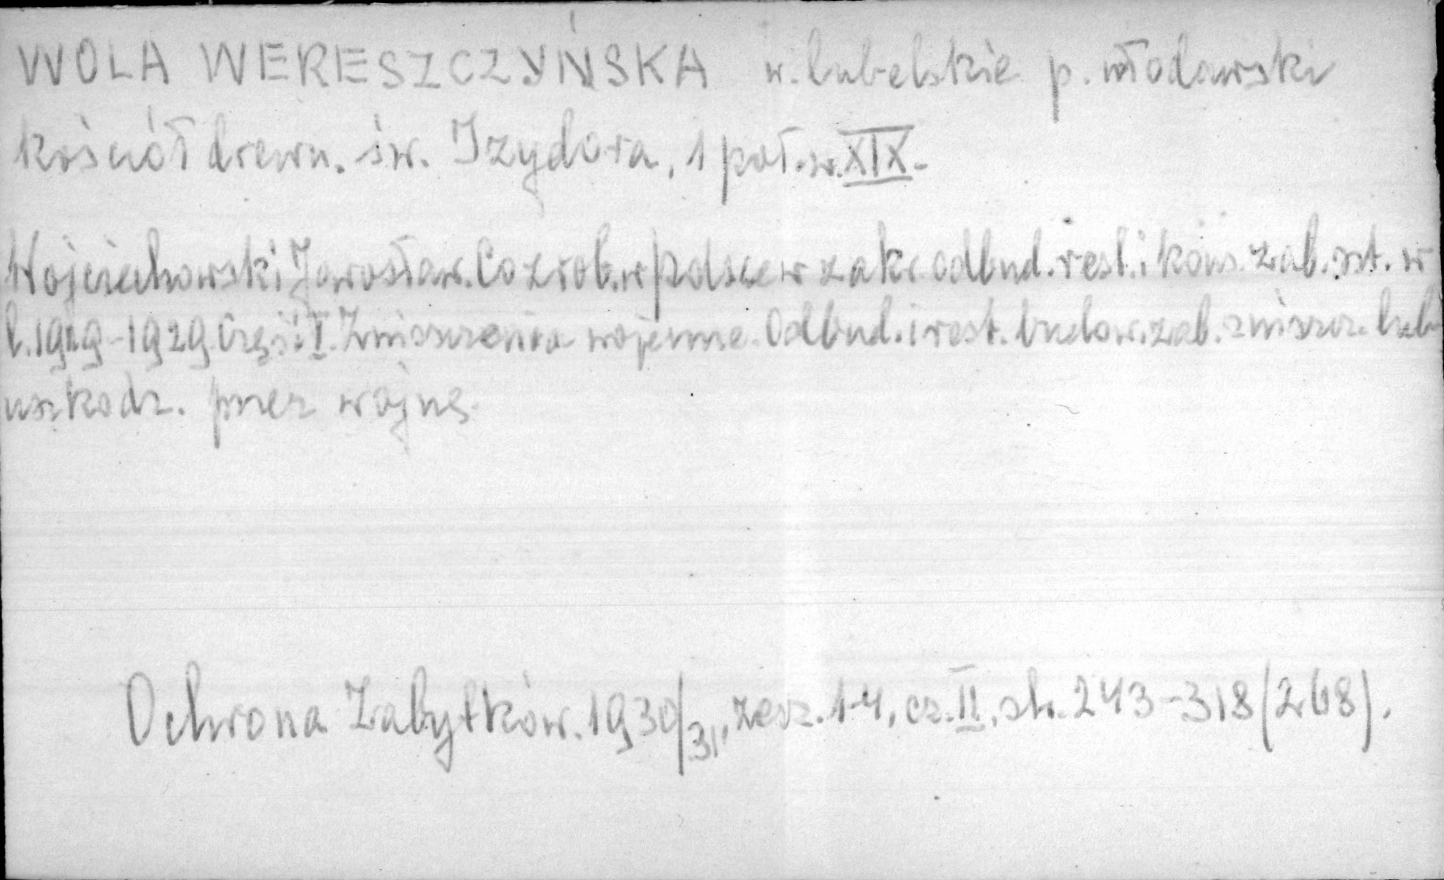 WOLA WERESZCZYŃSKA w. lubelskie p. włodawski
kościół drewn. św. Izydora, 1 poł. w. XIX.
Wojciechowski Jarosław. Co zrob. w Polsce w zakr. odbud. rest. i kons. zab. szt. w
l. 1919-1929. Część I. Zniszczenia wojenne. Odbud. i rest. budow. zab. zniszcz. lub
uszkodz. przez wojnę.
Ochrona Zabytków. 1930/31, zesz. 1-4, cz. II, str. 243-318 (268).